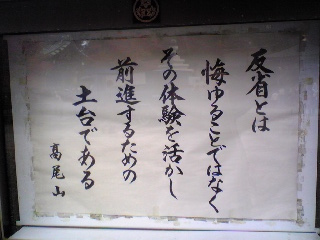 反省とは
悔ゆることではなく
その体験を活かし
前進するための
土台である
高尾山